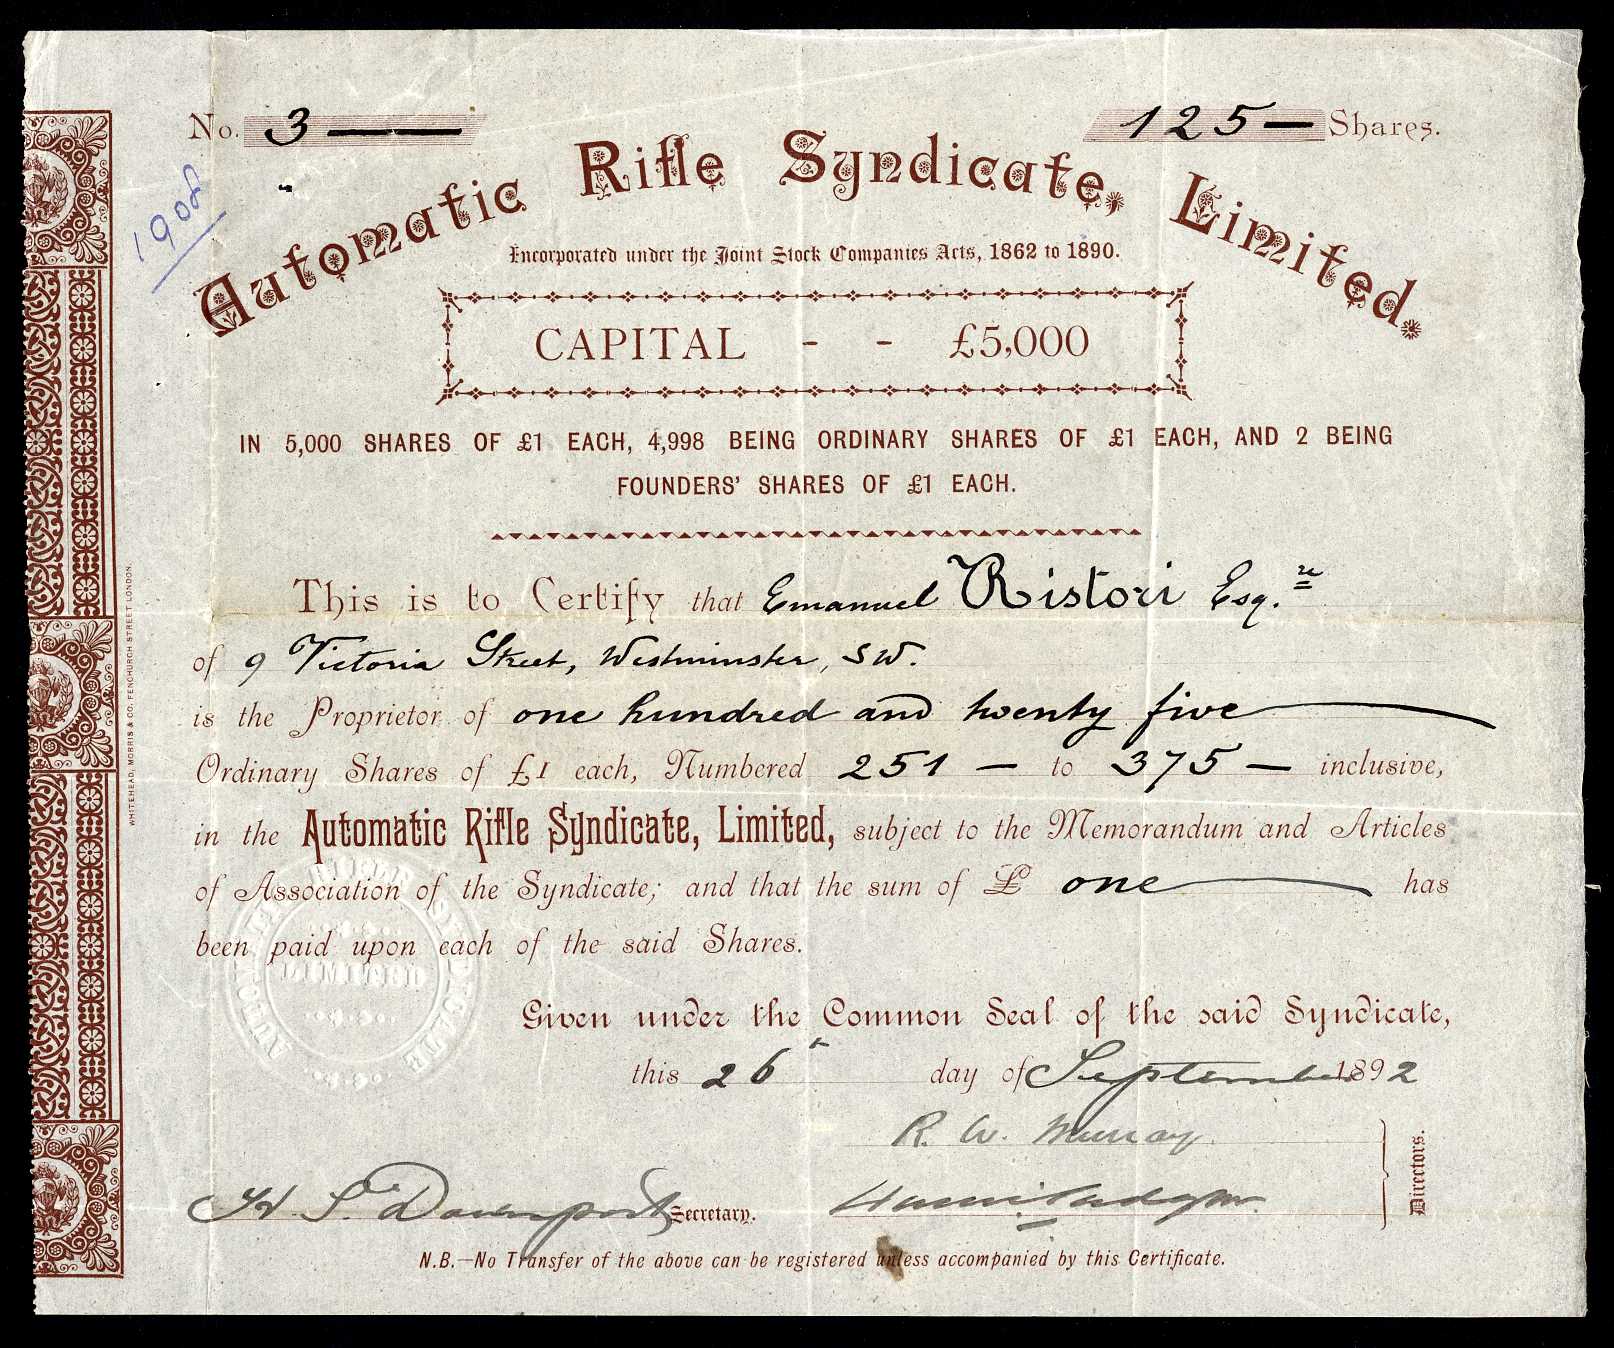 No. 3 —— 125 — Shares.
1908
Automatic Rifle Syndicate, Limited.
Incorporated under the Joint Stock Companies Acts, 1862 to 1890.
CAPITAL - - £5,000
IN 5,000 SHARES OF £1 EACH, 4,998 BEING ORDINARY SHARES OF £1 EACH, AND 2 BEING
FOUNDERS' SHARES OF £1 EACH.
This is to Certify that Emanuel Ristori Esq.re
of 9 Victoria Street, Westminster, SW.
is the Proprietor of one hundred and twenty five
Ordinary Shares of £1 each, Numbered 251 — to 375 — inclusive,
in the Automatic Rifle Syndicate, Limited, subject to the Memorandum and Articles
of Association of the Syndicate; and that the sum of £ one has
been paid upon each of the said Shares.
AUTOMATIC RIFLE SYNDICATE
LIMITED
Given under the Common Seal of the said Syndicate,
this 26 day of September 1892
R. W. Murray
H. S. Davenport Secretary.
Directors.
N.B.—No Transfer of the above can be registered unless accompanied by this Certificate.
WHITEHEAD, MORRIS & CO. FENCHURCH STREET LONDON.